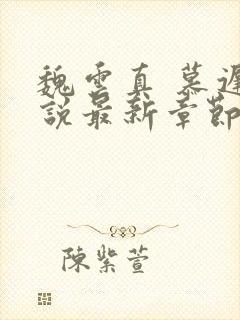 魏雲真 慕遲
說最新章節
陳紫萱